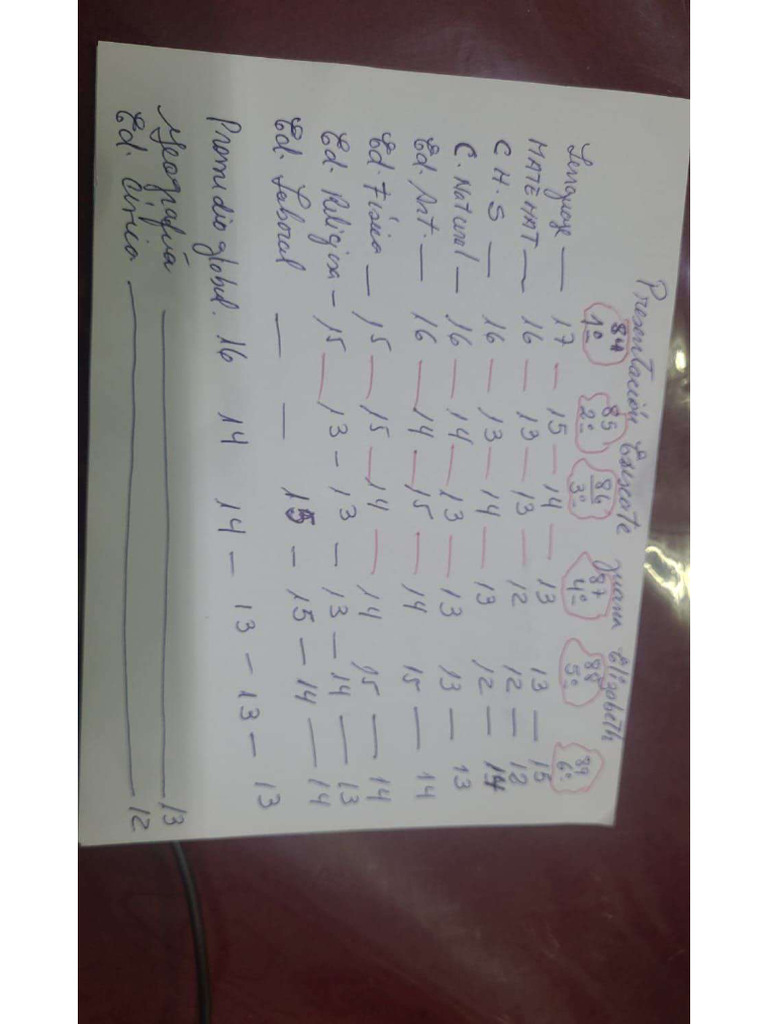 Presentación Escate Juana Elizabeth
84 85 86 87 88 89
1º 2º 3º 4º 5º 6º
Lenguaje — 17 — 15 — 14 — 13 13 — 15
MATEMAT — 16 — 13 — 13 — 12 12 — 12
C.H.S — 16 — 13 — 14 — 13 12 — 14
C. Natural — 16 — 14 — 13 — 13 13 — 13
Ed. Art. — 16 — 14 — 15 — 14 15 — 14
Ed. Física — 15 — 15 — 14 — 14 15 — 14
Ed. Religiosa — 15 — 13 — 13 — 13 — 14 — 13
Ed. Laboral — — 15 — 15 — 14 — 14
Promedio global. 16 14 14 — 13 — 13 — 13
Geografía — 13
Ed. Cívica — 12